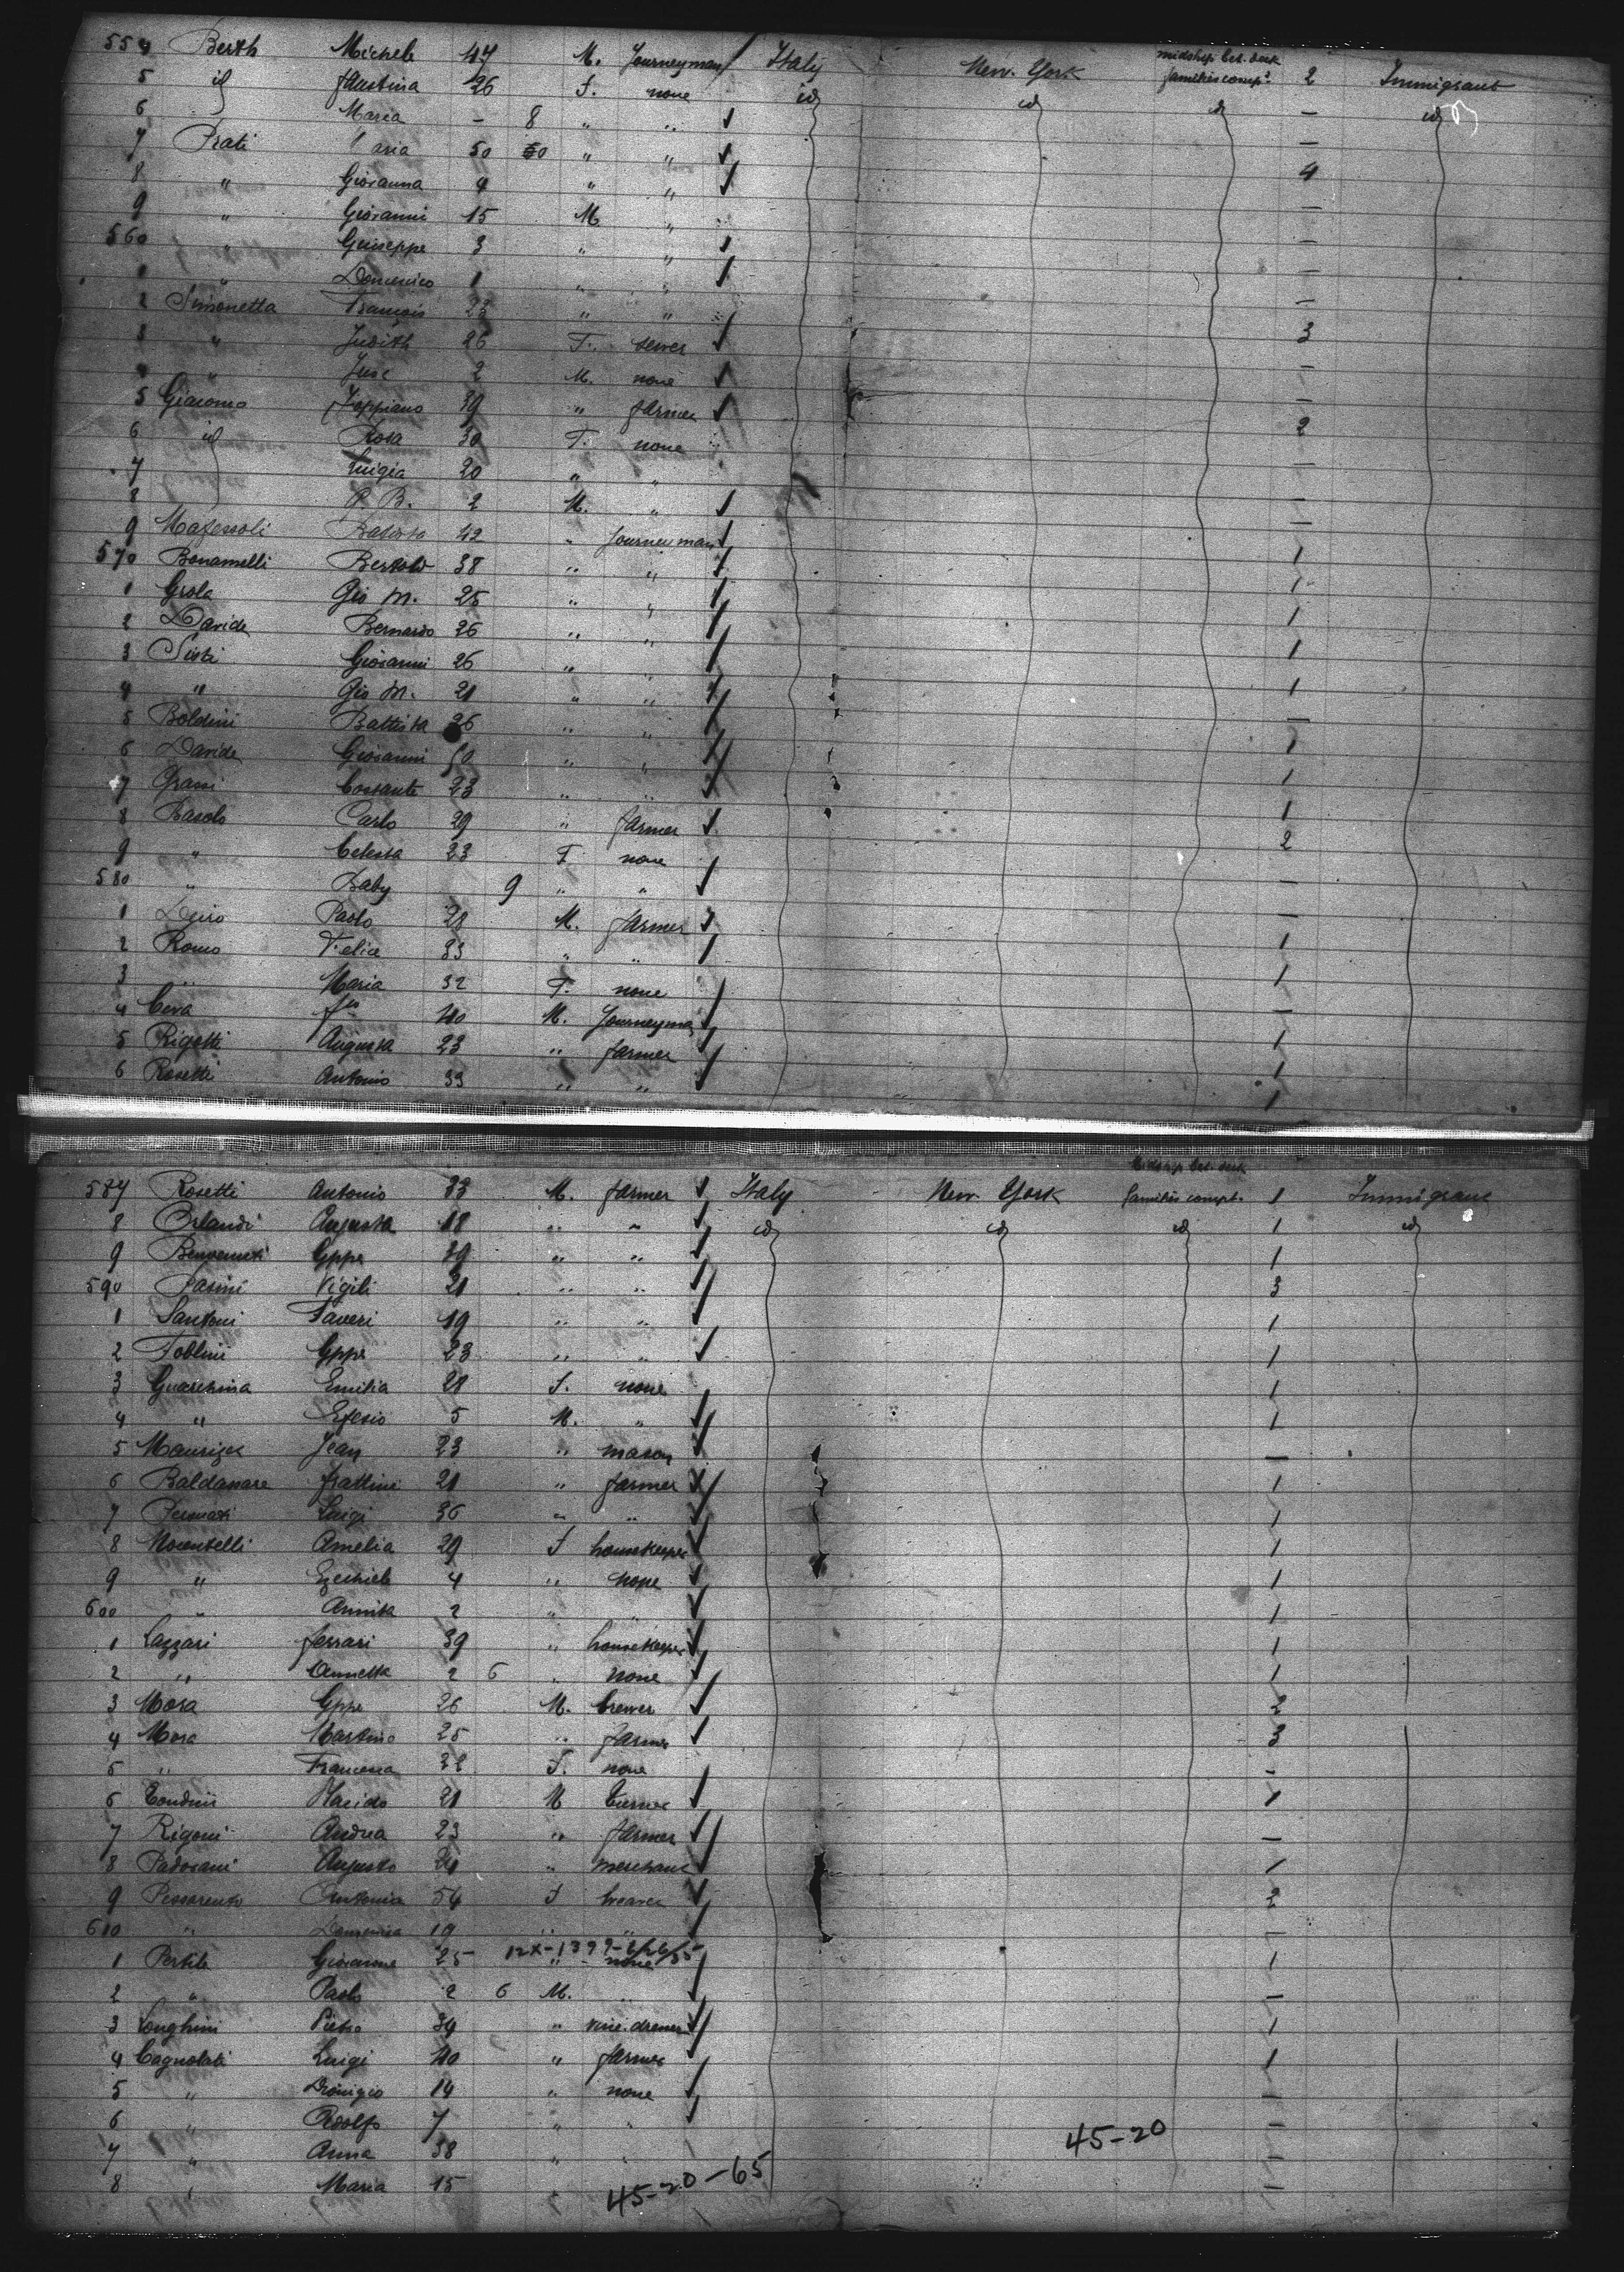 554 Berth Michele 47 M. Journeyman Italy New. York midship bet. deck families compt. 2 Immigrant
5 id Faustina 26 F. none id id id — id
6 Maria – 8 " " —
7 Prati Maria 50 " " 4
8 " Giovanna 4 " " —
9 " Giovanni 15 M " —
560 " Guiseppe 3 " " —
1 " Domenico 1 " " —
2 Simonetta François 23 " " 3
3 " Judith 26 F. sewer —
4 " 2 M. none —
5 Giacomo Joppiano 39 " farmer 2
6 id Rosa 30 F. none —
7 Luigia 20 " " —
8 P. B. 2 M. " —
9 Mafessoli Batista 42 " Journeyman 1
570 Bonamelli Bertolo 38 " " 1
1 Grola Gio M. 25 " " 1
2 Davide Bernardo 26 " " 1
3 Sisti Giovanni 26 " " 1
4 " Gio M. 21 " " —
5 Boldini Battista 26 " " 1
6 Davide Giovanni 50 " " 1
7 Grassi Costante 23 " " 1
8 Basolo Carlo 29 " farmer 2
9 " Celesta 23 F none —
580 " Baby 9 " " —
1 Deiro Paolo 28 M. farmer 1
2 Romo Felice 33 " " 1
3 " Maria 32 F. none —
4 Ceva 40 M. Journeyman 1
5 Rigotti Augusta 23 " farmer 1
6 Rosetti Antonio 33 " " 1
587 Rosetti Antonio 33 M. farmer Italy New. York midship bet. deck families compt. 1 Immigrant
8 Orlandi Augusta 18 " " id id id 1 id
9 Benvenuti Gppe 39 " " 1
590 Pasini Vigili 21 " " 3
1 Santoni Saveri 19 " " 1
2 Toblini Gppe 23 " " 1
3 Guarchina Emilia 28 F. none 1
4 " Efesio 5 M. " 1
5 Jean 23 " mason —
6 Baldassare Frattini 21 " farmer 1
7 Luigi 36 " " 1
8 Morentelli Amelia 29 F housekeeper 1
9 " Ezechiele 4 " none 1
600 " Annita 2 " " 1
1 Lazzari Ferrari 39 " housekeeper 1
2 " Annetta 2 6 " none 1
3 Mora Gppe 26 M. brewer 2
4 Mora Martino 25 " farmer 3
5 " Francesca 38 F. none -
6 Placido 21 M turner 1
7 Rigoni Andrea 23 " farmer —
8 Padovani Augusto 21 " merchant 1
9 Pessarento Antonia 54 F weaver 2
610 " Domenica 19 " " —
1 Pertile Giovanna 25 12X-1399-2/26/35 " none 1
2 " Paolo 2 6 M. " —
3 Longhini Pietro 34 " vine.dresser 1
4 Cagnolati Luigi 40 " farmer 1
5 " Dionigio 14 " none —
6 " Adolfo 7 " —
7 " Anna 38 " 45-20 —
8 " Maria 15 45-20-65 —